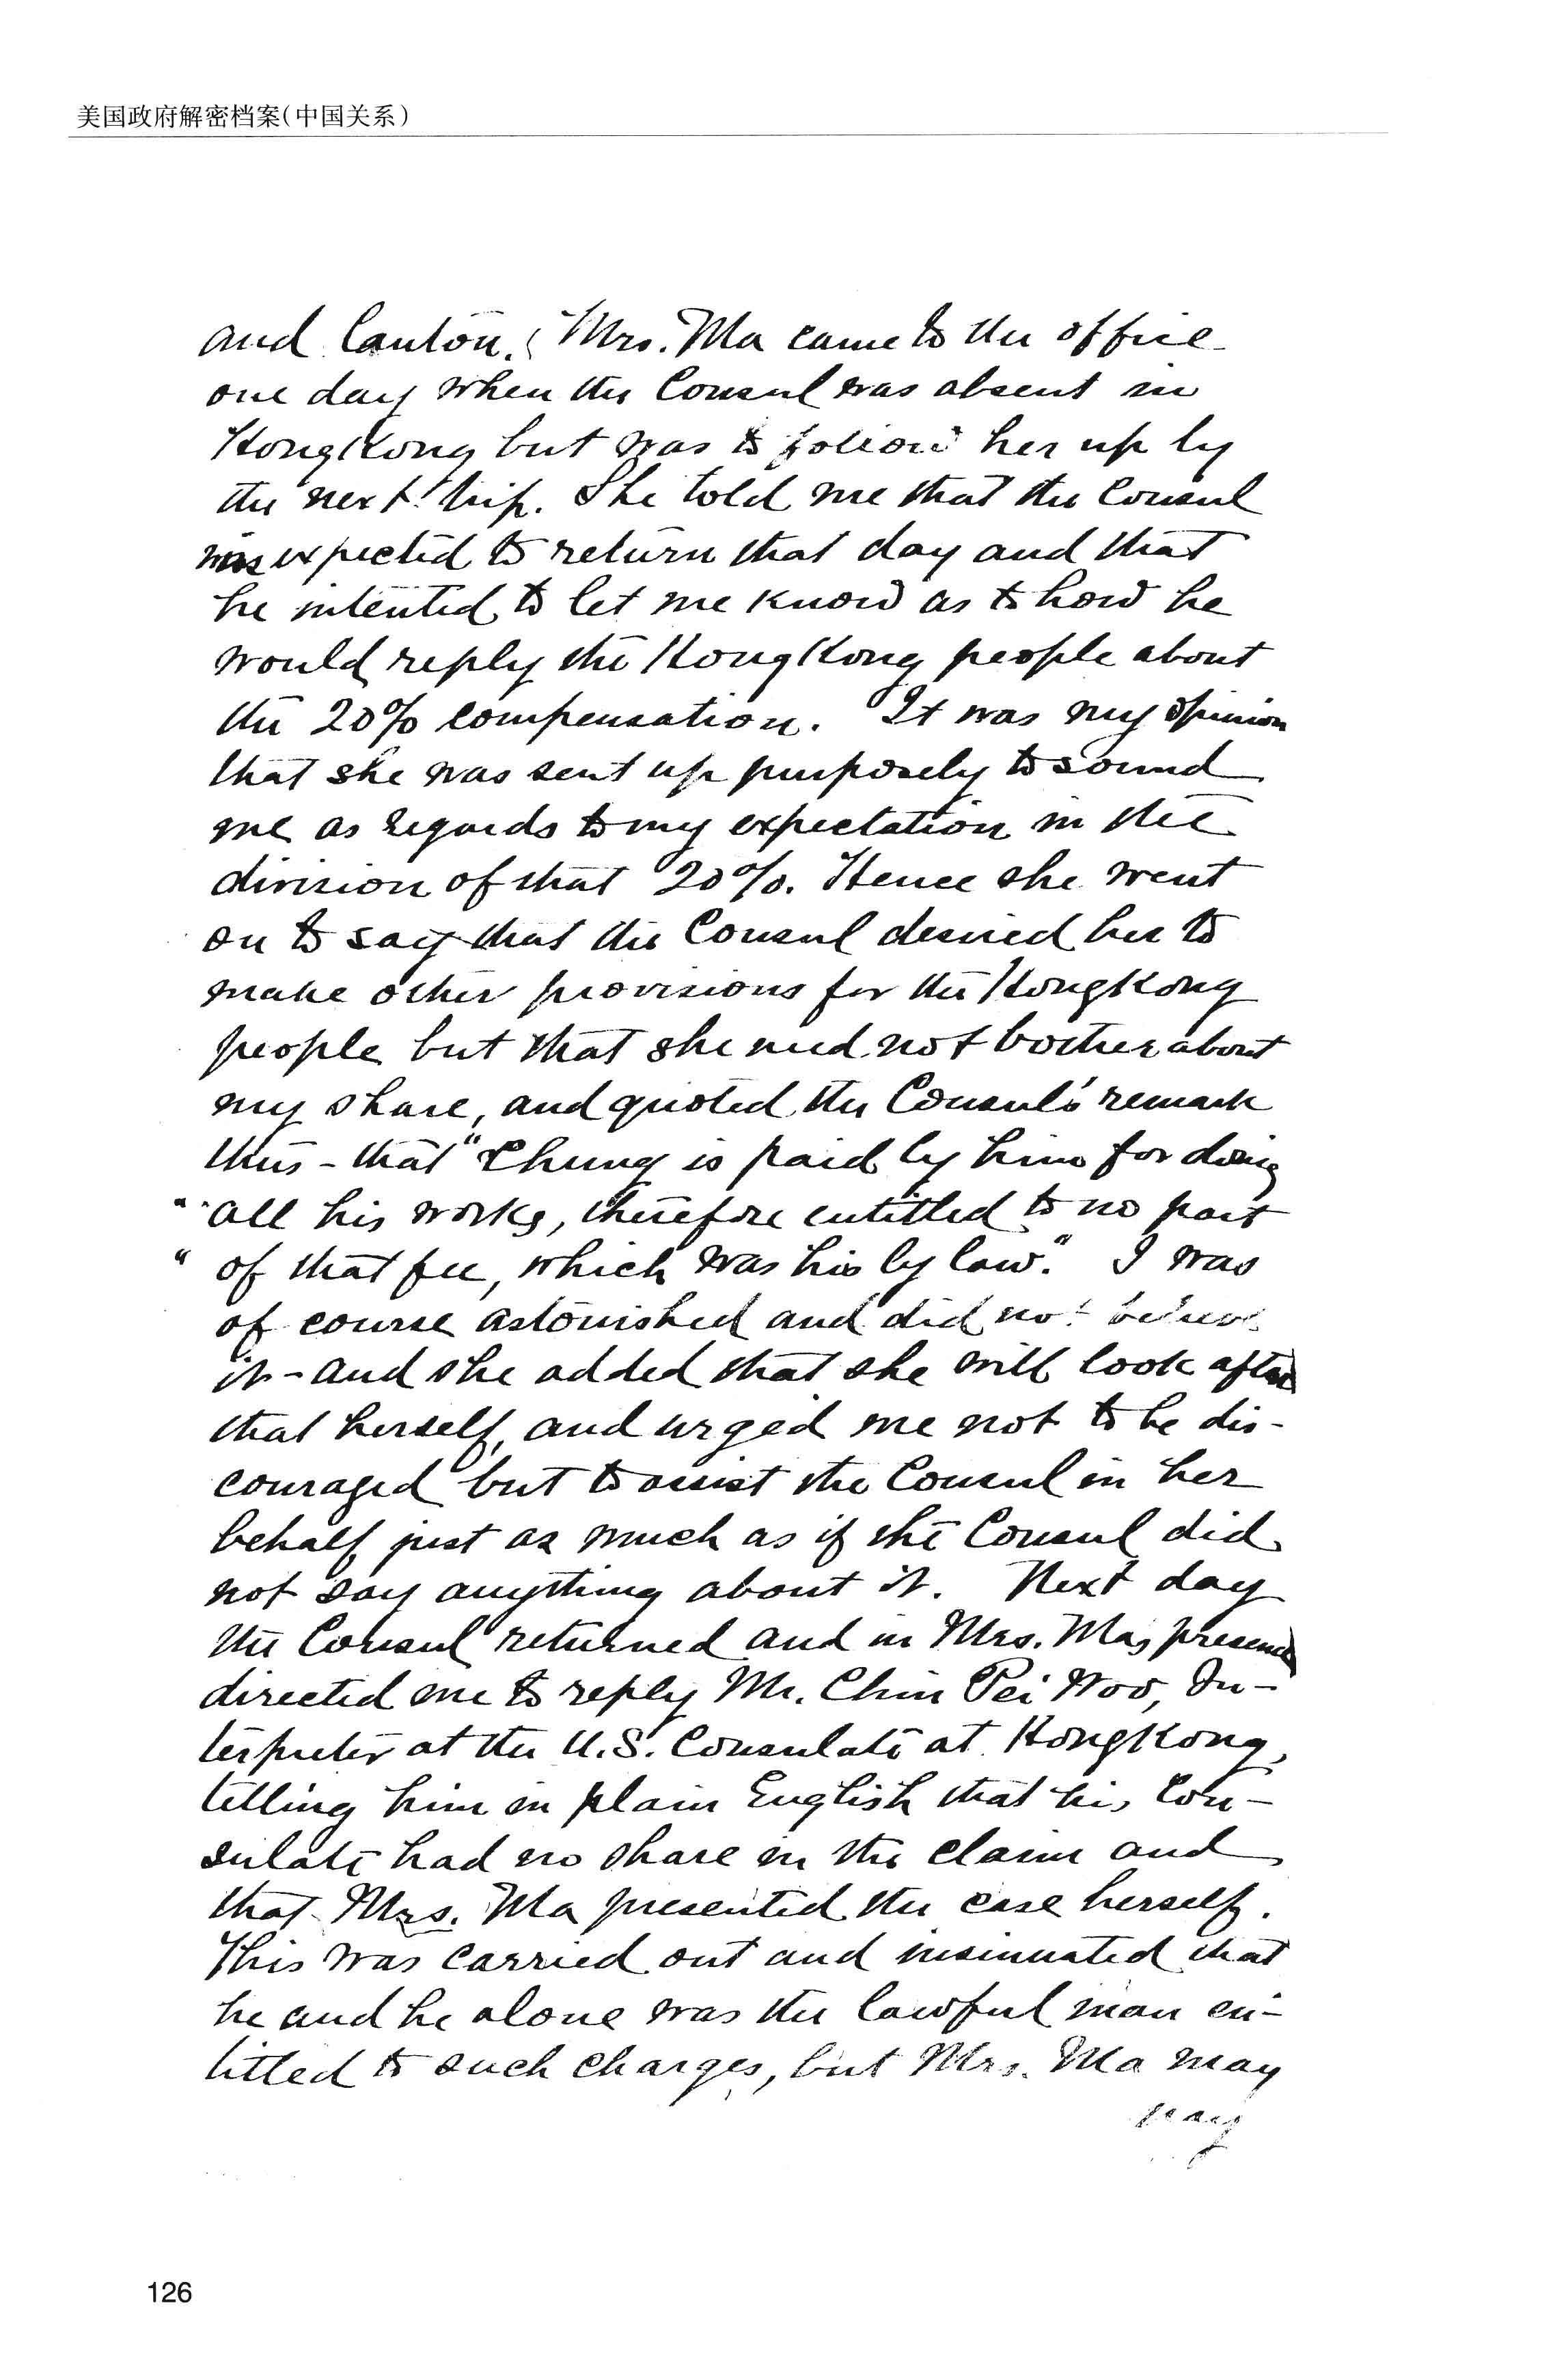 美国政府解密档案(中国关系)
and Canton. Mrs. Ma came to the office
one day when the Consul was absent in
HongKong but was to follow her up by
the next trip. She told me that the Consul
was expected to return that day and that
he intented to let me know as to how he
would reply the HongKong people about
the 20% compensation. It was my opinion
that she was sent up purposely to sound
me as regards to my expectation in the
division of that 20%. Hence she went
on to say that the Consul desired her to
make other provisions for the HongKong
people but that she need not bother about
my share, and quoted the Consul's remark
thus - that "Chung is paid by him for doing
" all his works, therefore entitled to no part
" of that fee, which was his by law." I was
of course astonished and did not believe
it - and she added that she will look after
that herself, and urged me not to be dis-
couraged but to assist the Consul in her
behalf just as much as if the Consul did
not say anything about it. Next day
the Consul returned and in Mrs. Ma's presence
directed me to reply Mr. Chin Pei Woo, In-
terpreter at the U.S. Consulate at HongKong,
telling him in plain English that his Con-
sulate had no share in the claim and
that Mrs. Ma presented the case herself.
This was carried out and insinuated that
he and he alone was the lawful man en-
titled to such charges, but Mrs. Ma may
126